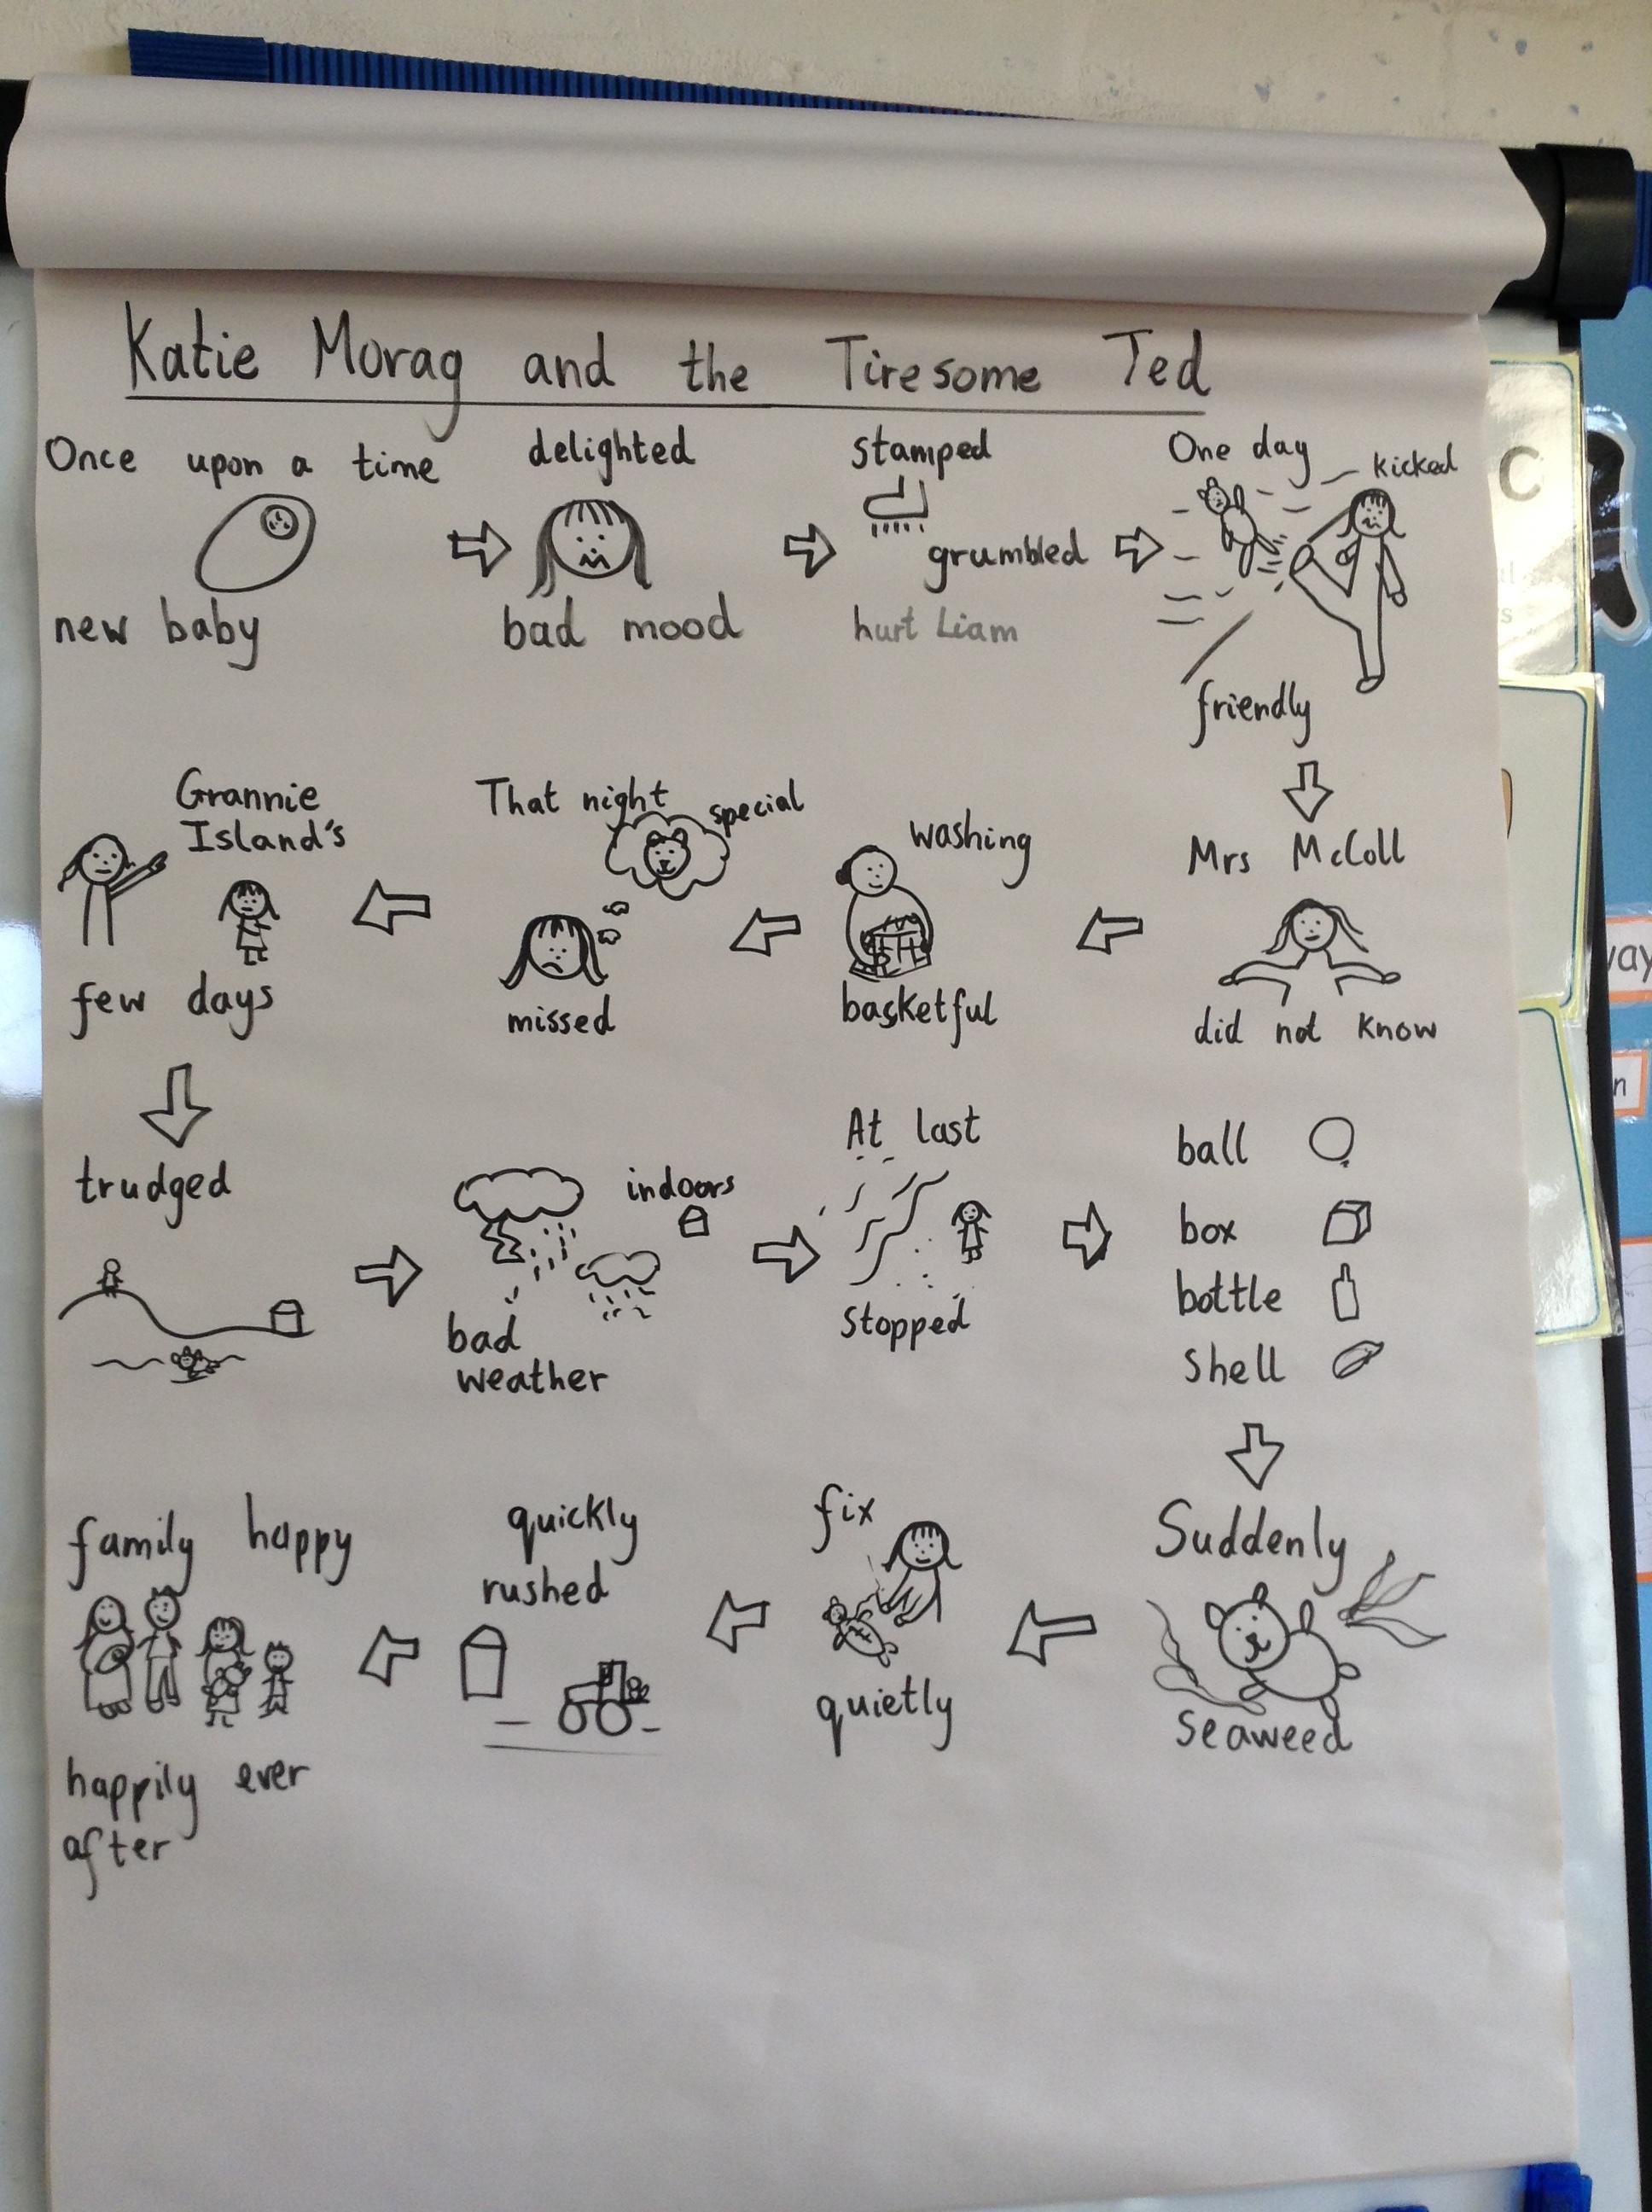 Katie Morag and the Tiresome Ted
Once upon a time
new baby
delighted
bad mood
stamped
grumbled
hurt Liam
One day
kicked
friendly
Mrs McColl
did not know
washing
basketful
That night
special
missed
Grannie
Island's
few days
trudged
bad
weather
indoors
At last
stopped
ball
box
bottle
shell
Suddenly
seaweed
fix
quietly
quickly
rushed
family happy
happily ever
after
C